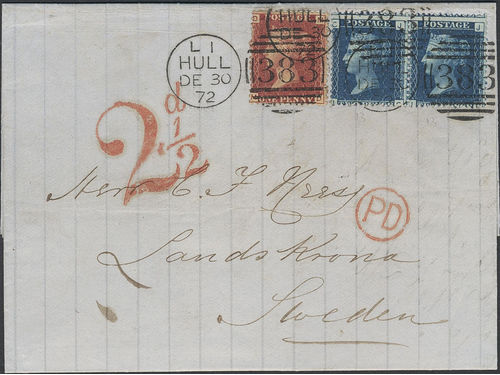 L I
HULL
DE 30
72
HULL
DE 30
383
PENNY
POSTAGE
POSTAGE
383
2 d 1/2
PD
Herr C. F. Neess
Landskrona
Sweden